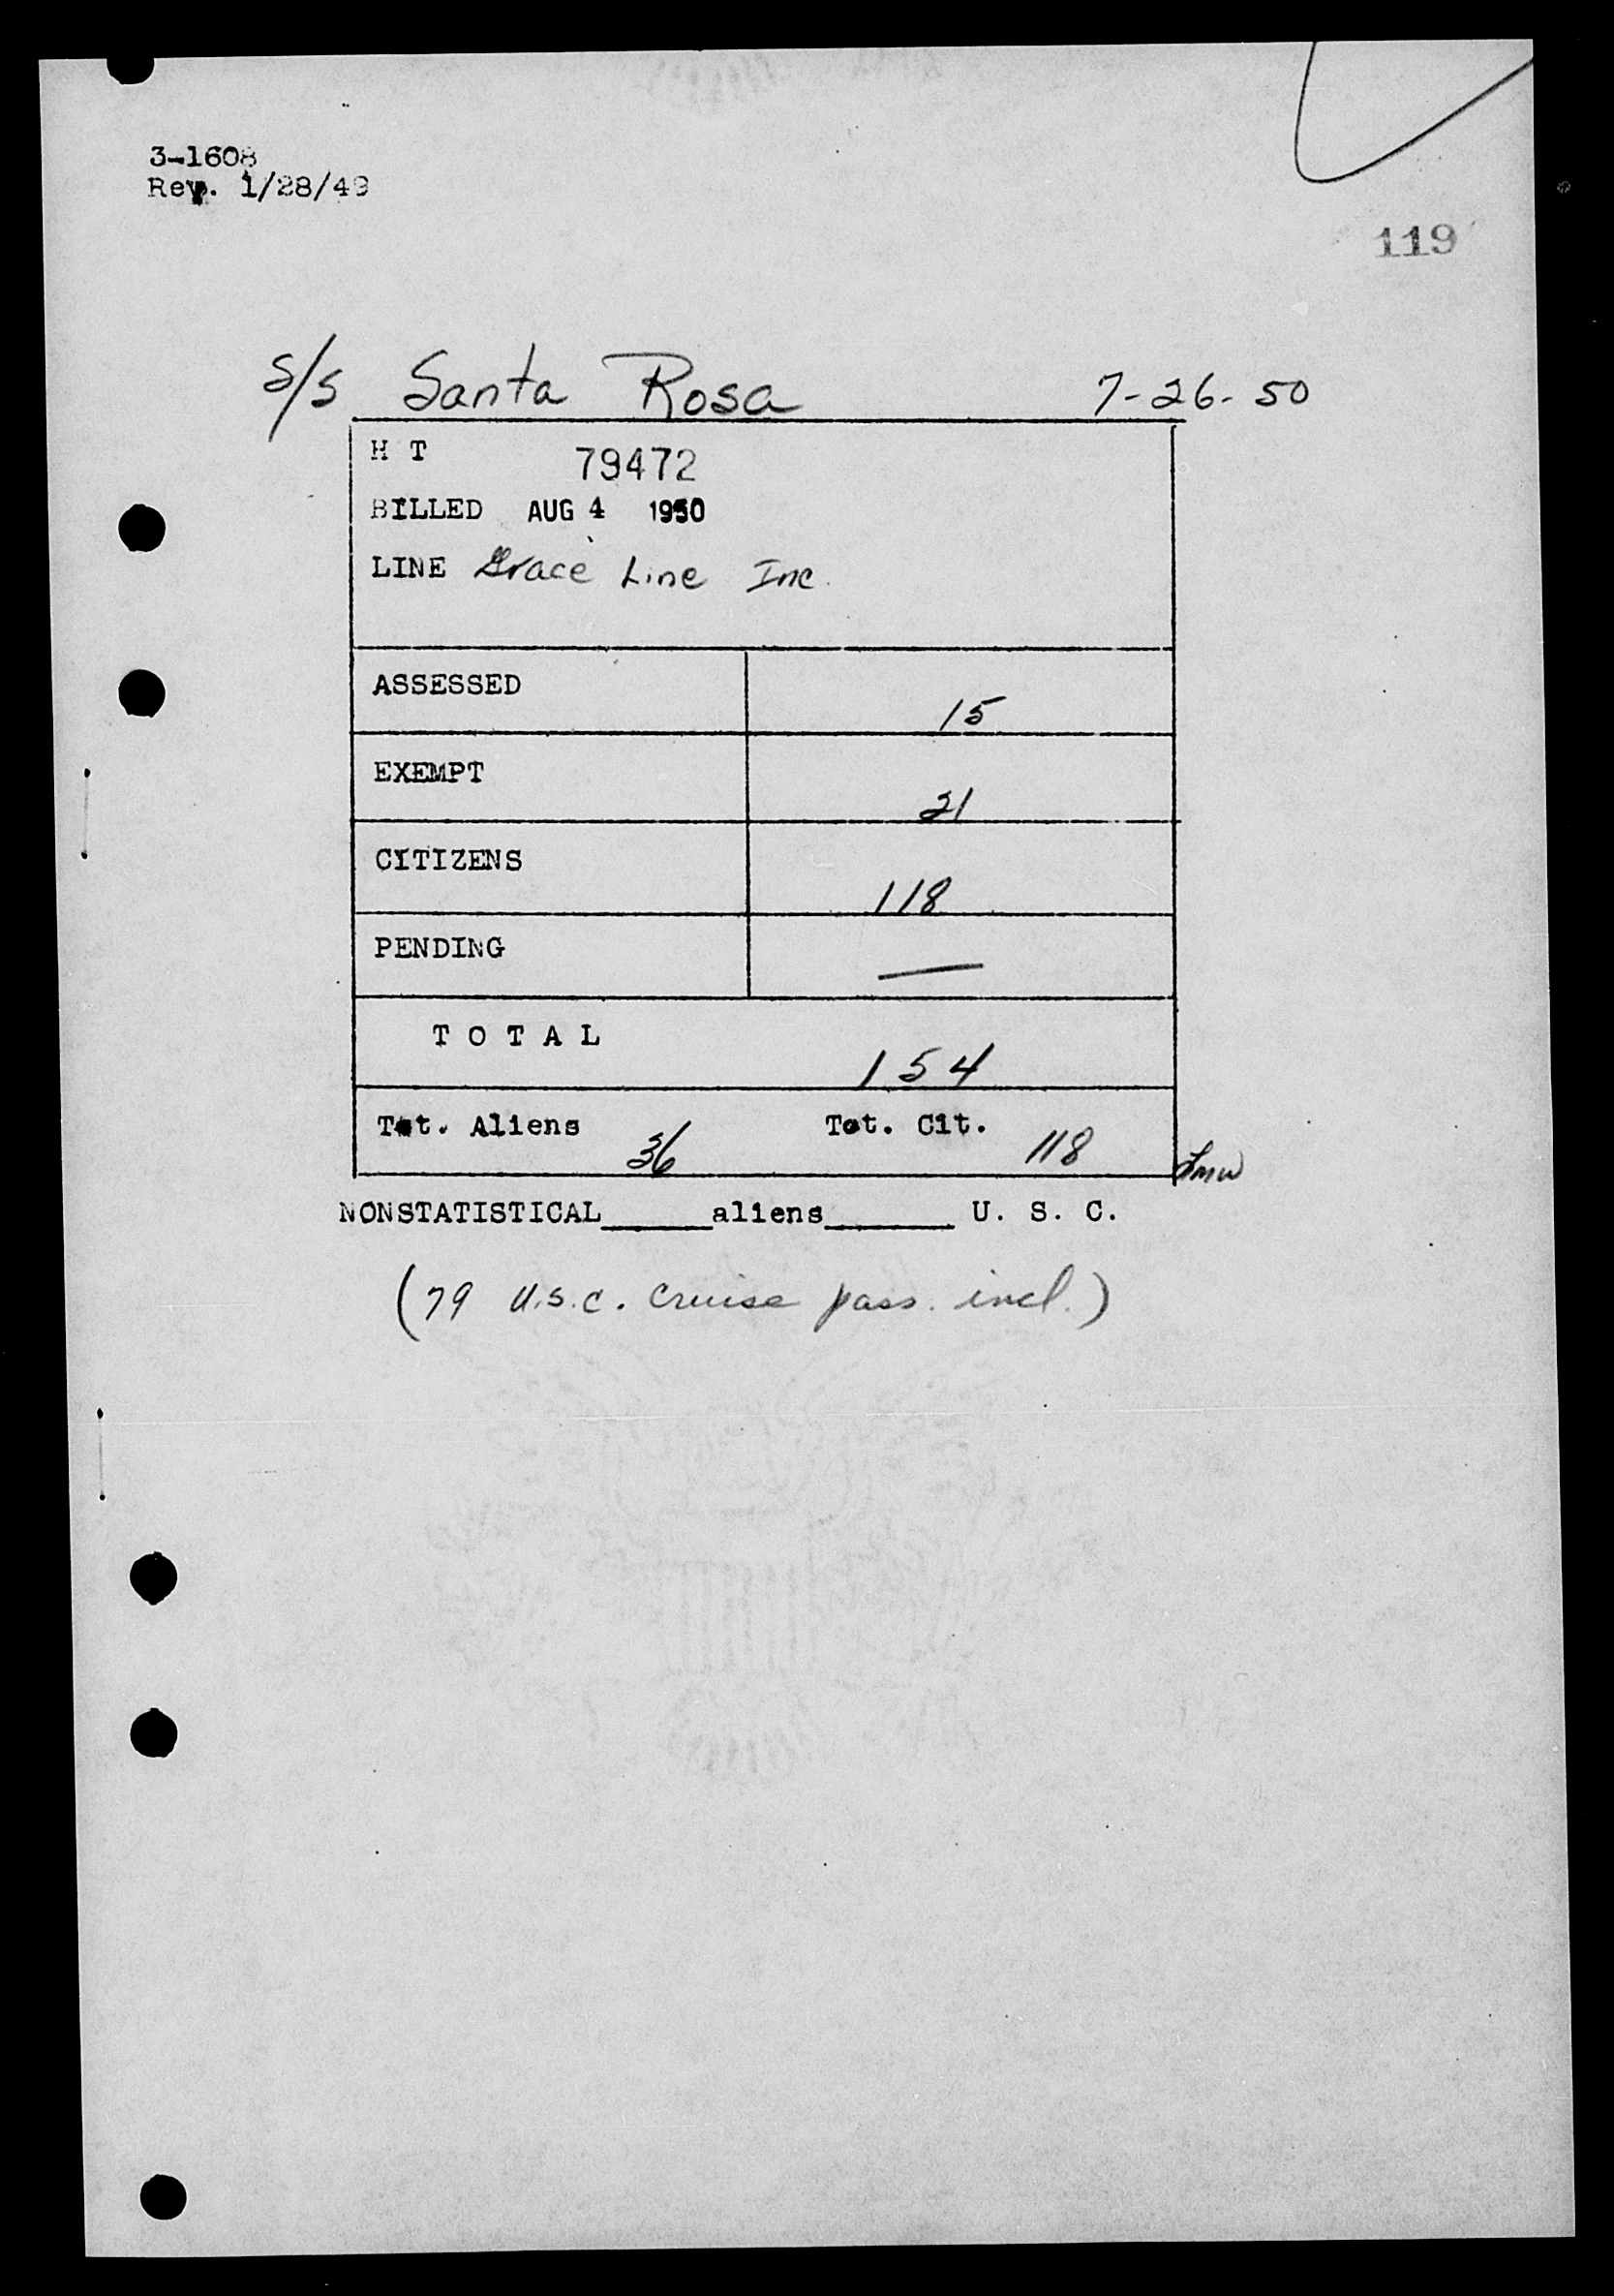 3-1608
Rev. 1/28/49
119
S/S Santa Rosa 7-26-50
H T 79472
BILLED AUG 4 1950
LINE Grace Line Inc.
ASSESSED 15
EXEMPT 21
CITIZENS 118
PENDING —
T O T A L 154
Tot. Aliens 36 Tot. Cit. 118
NONSTATISTICAL______aliens_______ U. S. C.
(79 U.S.C. Cruise pass. incl.)